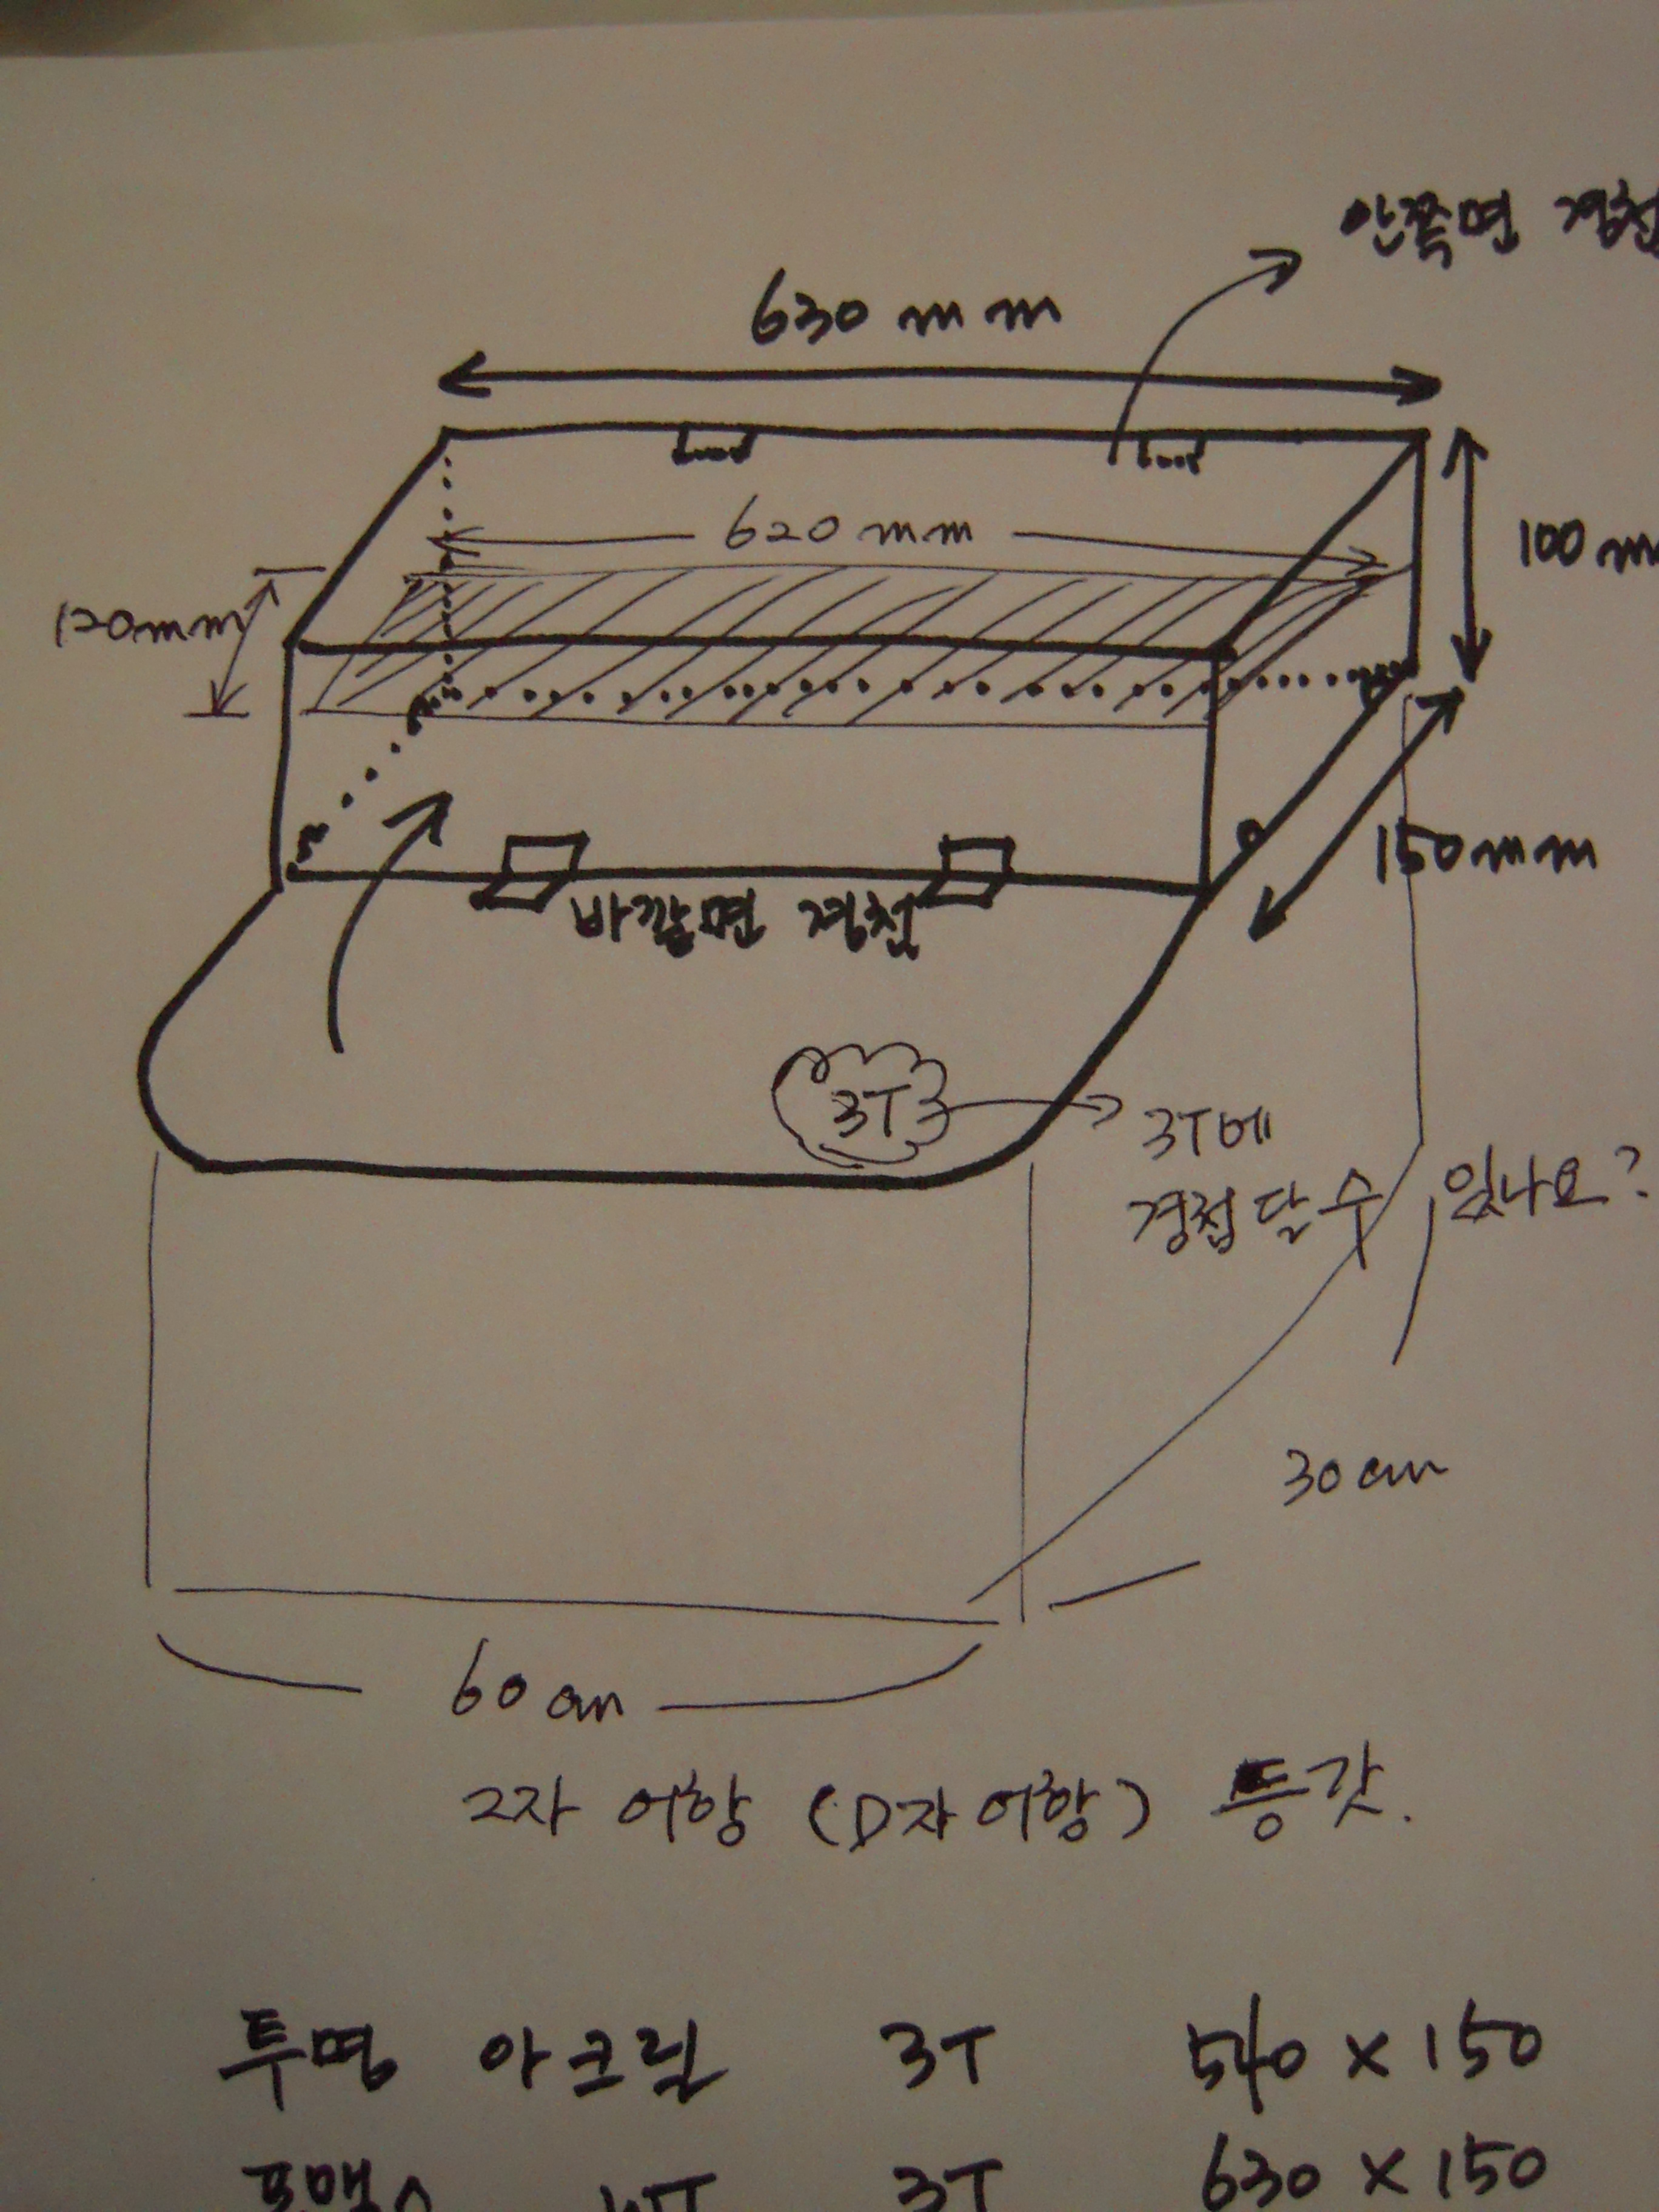 안쪽면 경첩
630 mm
620 mm
100 m
120mm
150mm
바깥면 경첩
3T
3T에
경첩 달 수 있나요?
30cm
60cm
2자 어항 (D자 어항) 등갓.
투명 아크릴 3T 540 x 150
포맥스 3T 630 x 150